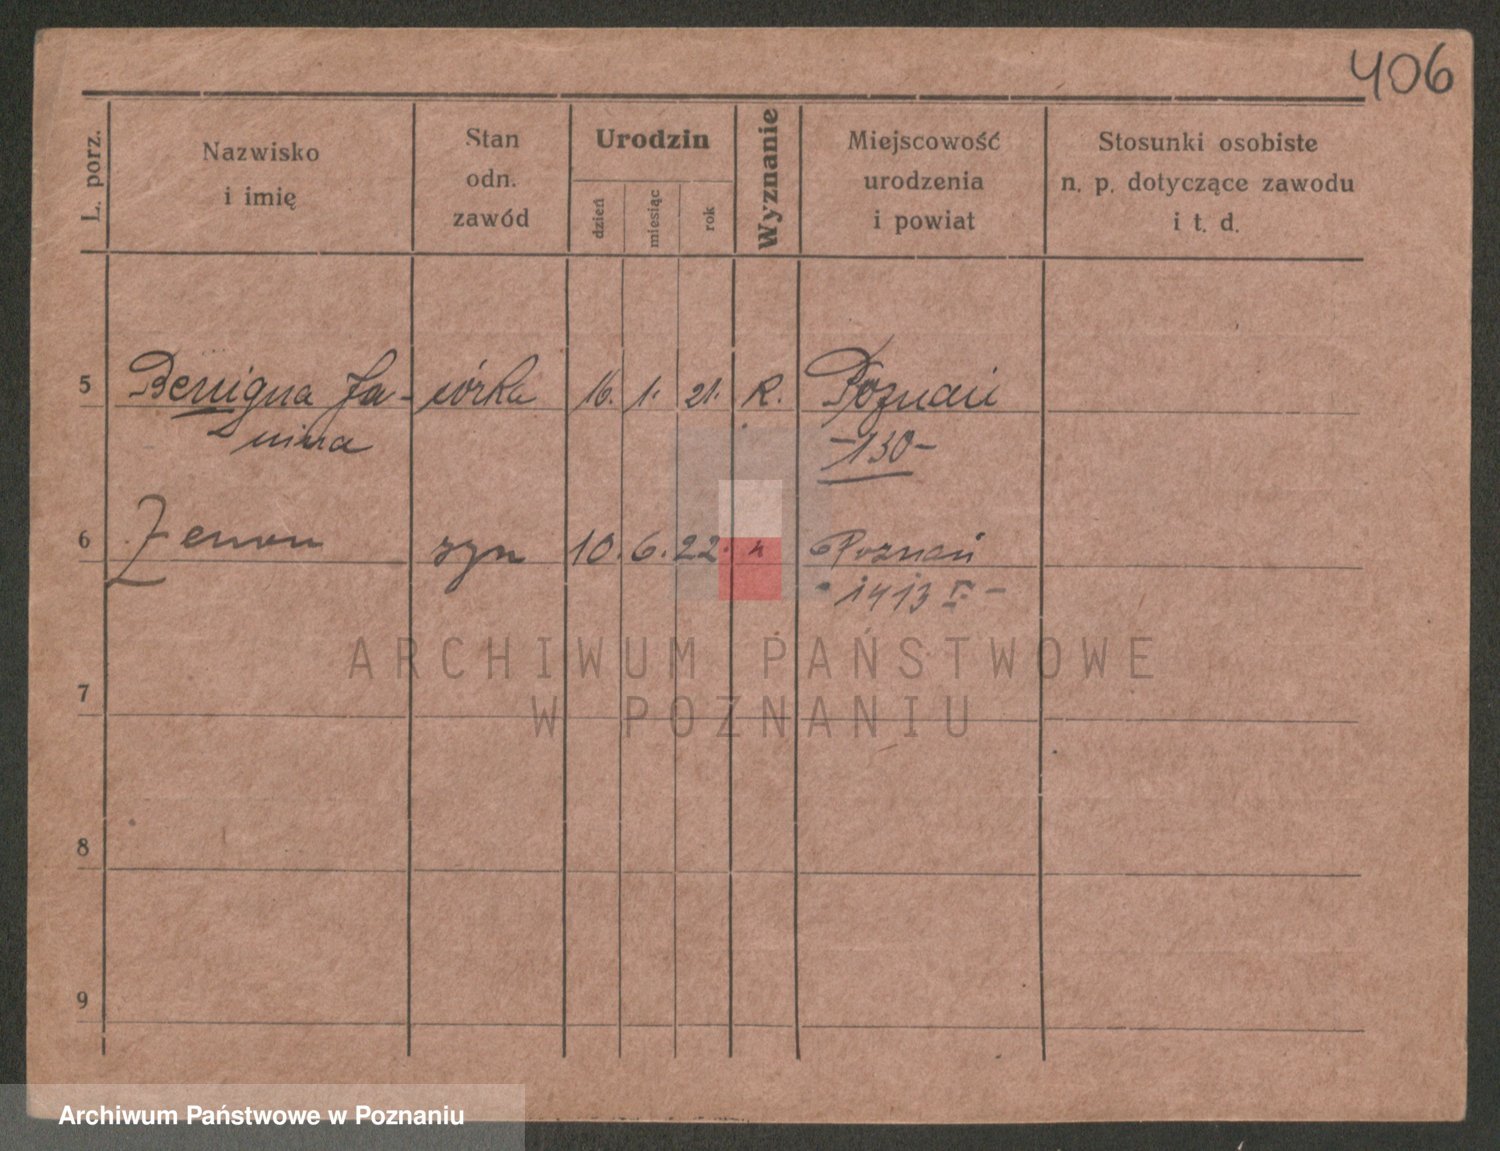 406
L. porz.
Nazwisko
i imię
Stan
odn.
zawód
Urodzin
dzień
miesiąc
rok
Wyznanie
Miejscowość
urodzenia
i powiat
Stosunki osobiste
n. p. dotyczące zawodu
i t. d.
5 Benigna Ja- córka 16. 1. 21. R. Poznań
nina -130-
6 Zenon syn 10. 6. 22. Poznań
1413
7
8
9
ARCHIWUM PAŃSTWOWE
W POZNANIU
Archiwum Państwowe w Poznaniu